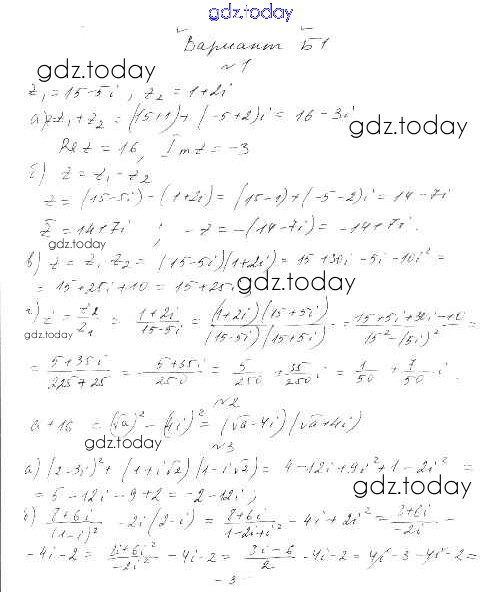 gdz.today
Вариант Б1
gdz.today
№1
z₁ = 15-5i, z₂ = 1+2i
а) z = z₁ + z₂ = (15+1) + (-5+2)i = 16 - 3i
gdz.today
Re z = 16, Im z = -3
б) z = z₁ - z₂
z = (15-5i) - (1+2i) = (15-1) + (-5-2)i = 14 - 7i
z̄ = 14+7i ; -z = -(14-7i) = -14+7i.
gdz.today
в) z = z₁ z₂ = (15-5i)(1+2i) = 15+30i-5i-10i² =
= 15+25i+10 = 15+25i
gdz.today
г) z = z₂/z₁ = (1+2i)/(15-5i) = (1+2i)(15+5i)/(15-5i)(15+5i) = (15+5i+30i-10)/(15²-(5i)²) =
gdz.today
= (5+35i)/(225+25) = (5+35i)/250 = 5/250 + 35/250 i = 1/50 + 7/50 i.
№2
a+16 = (√a)² - (4i)² = (√a-4i)(√a+4i)
gdz.today
№3
а) (2-3i)² + (1+i√2)(1-i√2) = 4-12i+9i²+1-2i² =
gdz.today
= 5-12i-9+2 = -2-12i;
б) (8+6i)/(1-i)² - 2i(2-i) = (8+6i)/(1-2i+i²) - 4i+2i² = (8+6i)/(-2i) -
-4i-2 = (8i+6i²)/(-2i²) -4i-2 = (8i-6)/2 -4i-2 = 4i-3-4i-2 =